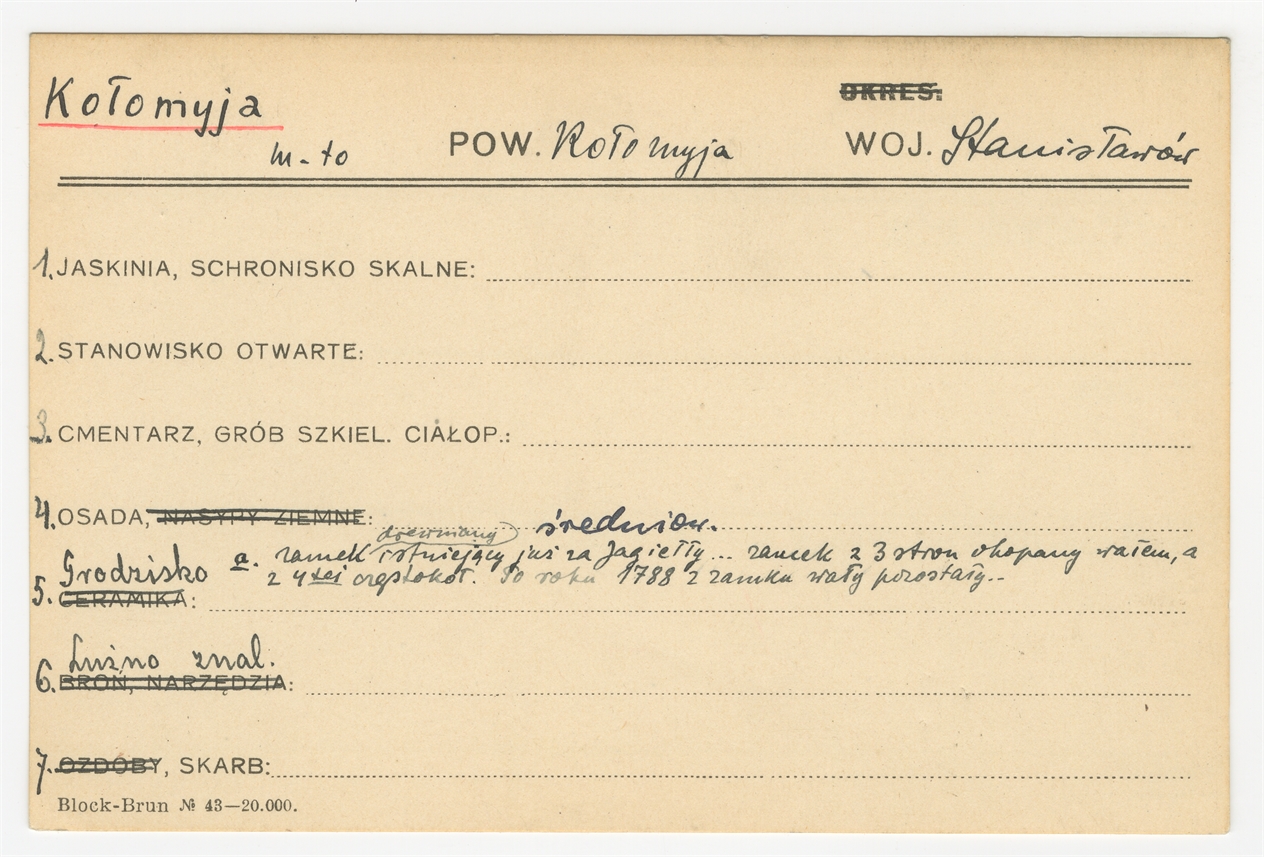 Kołomyja
OKRES:
m-to POW. Kołomyja WOJ. Stanisławów
1. JASKINIA, SCHRONISKO SKALNE:
2. STANOWISKO OTWARTE:
3. CMENTARZ, GRÓB SZKIEL. CIAŁOP.:
4. OSADA, NASYPY ZIEMNE: średniow.
drewniany
Grodzisko a. zamek istniejący już za Jagiełły... zamek z 3 stron okopany wałem, a
z 4tej częstokół. Po roku 1788 z zamku wały pozostały..
5. CERAMIKA:
Luźno znal.
6. BROŃ, NARZĘDZIA:
7. OZDOBY, SKARB:
Block-Brun № 43—20.000.